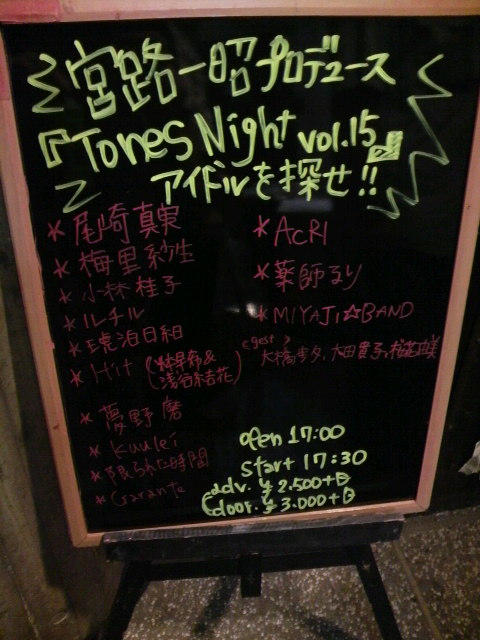 宮路一昭プロデュース
『Tones Night vol.15』
アイドルを探せ!!
* 尾崎真実
* 梅里紗生
* 小林桂子
* ルチル
* 琥珀日組
* Hit (林早希&
浅谷結花)
* 夢野 磨
* Kuulei
* 限られた時間
* Garante
* AcRI
* 薬師るり
* MIYAJI☆BAND
<gest>
大橋歩夕、太田貴子、桜花由美
open 17:00
start 17:30
adv. ¥2.500+D
door. ¥3.000+D